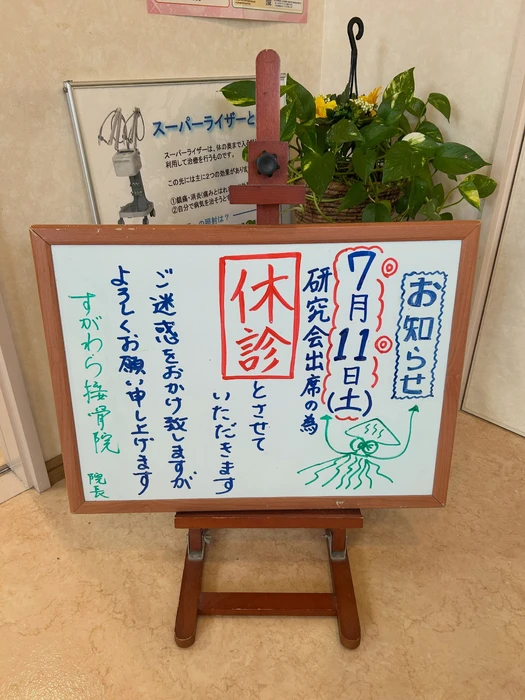 お知らせ
7月11日(土)
研究会出席の為
休診
とさせて
いただきます
ご迷惑をおかけ致しますが
よろしくお願い申し上げます
すがわら接骨院
院長
スーパーライザーと
スーパーライザーは、体の奥まで入
利用して治療を行うものです。
この光には主に2つの効果があり
①鎮痛・消炎(痛みとはれ
②自分で病気を治そうと
の照射は?